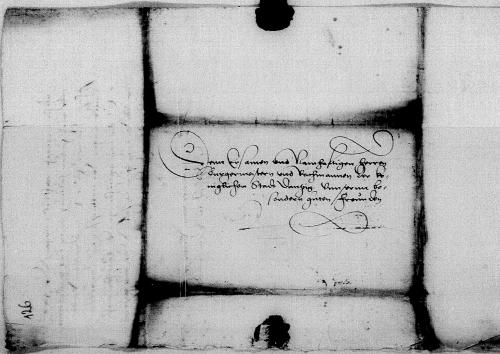 Denn Ersamen und Namhafftigen herren
Burgermeistern und Rathmannen der ko
niglichen Stadt Dantzig, Unsernn be-
sondern guten freunden
126